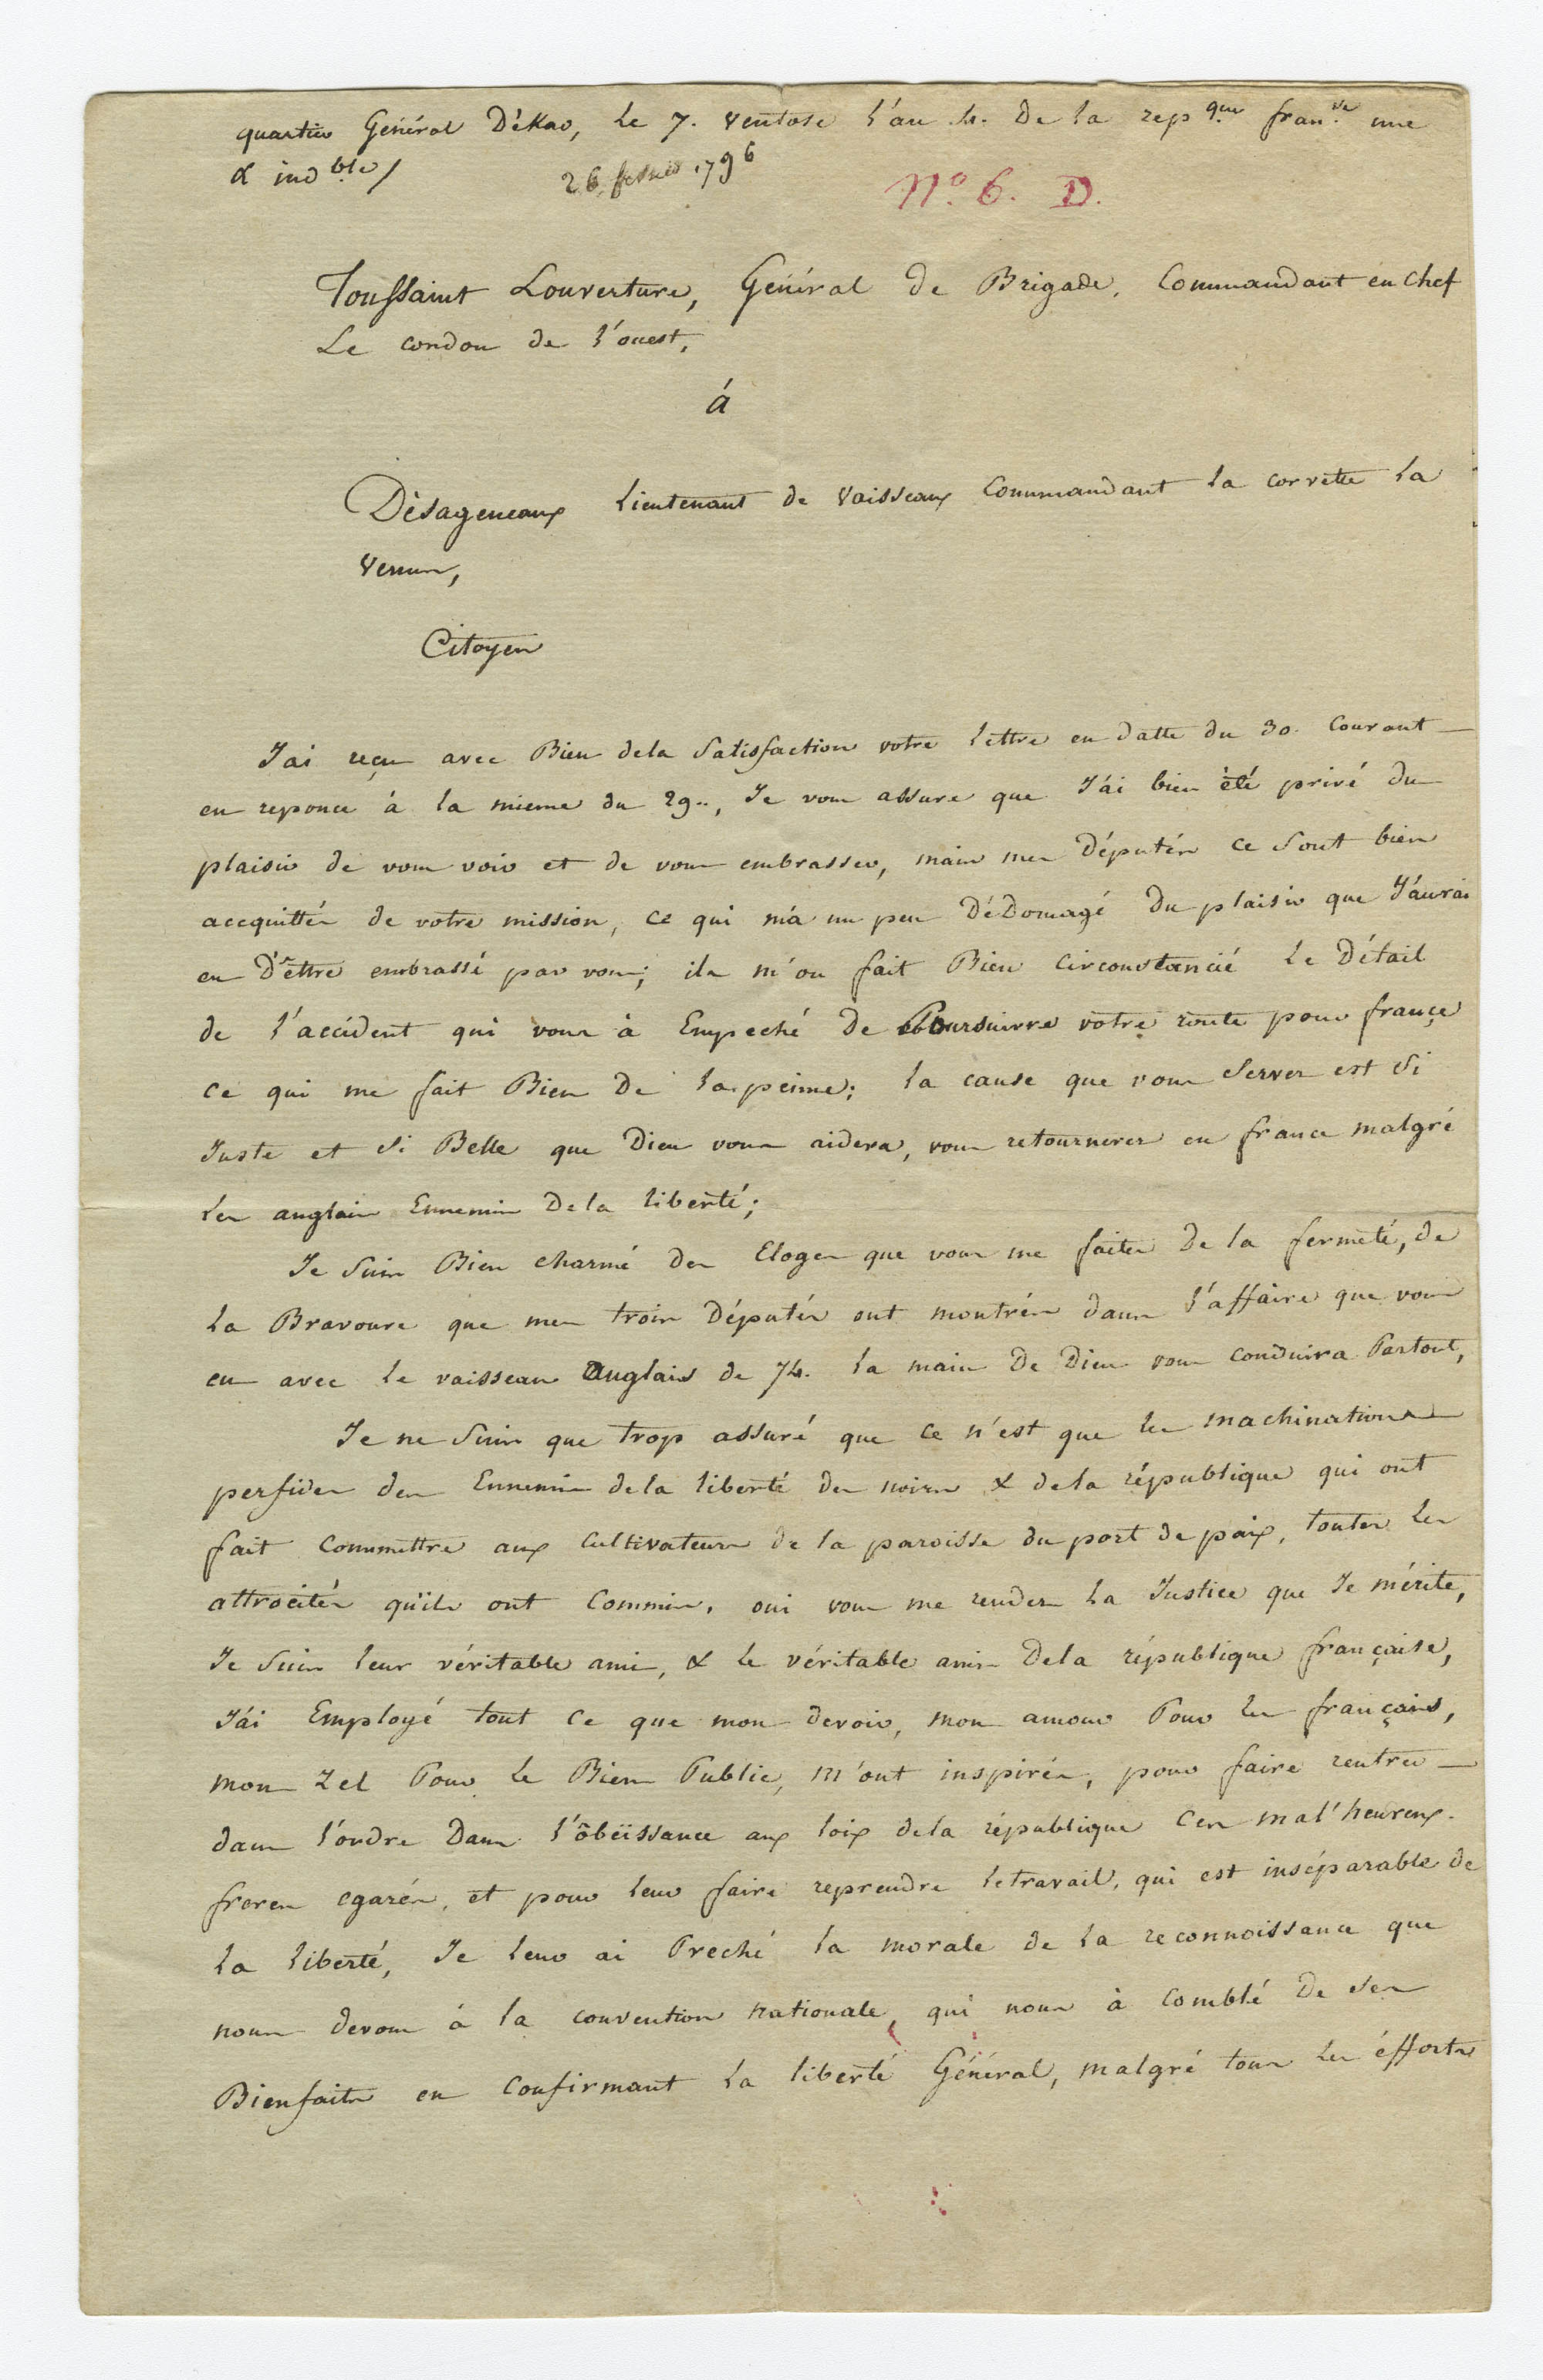 quartier Général D'Ékao, Le 7. Ventose l'an 4. De la rep que. fran. se une
& ind ble/
26 fevrier 1796
N° 6. D.
Toussaint Louverture, Général de Brigade, Commandant en chef
Le cordon de l'ouest,
á
Désageneaux lieutenant de Vaisseaux Commandant la corvette la
Venus,
Citoyen
J'ai reçu avec Bien dela Satisfaction votre lettre en datte du 30. Courant
en reponce à la mienne du 29.., Je vous assure que J'ai bien èté privé du
plaisir de vous voir et de vous embrasser, mais mes Députés ce sont bien
accquittés de votre mission, ce qui m'a un peu DéDomagé Du plaisir que J'aurai
eu D'êttre embrassé par vous; ils m'on fait Bien Circonstancié Le Détail
de l'accident qui vous à Empeché de Poursuivre votre route pour françe
ce qui me fait Bien De la peinne; la cause que vous Servez est Si
Juste et Si Belle que Dieu vous aidera, vous retournerez en france malgré
Les anglais Ennemis Dela liberté;
Je Suis Bien charmé des Eloges que vous me faites De la fermeté, de
La Bravoure que mes trois Députés ont montrés dans l'affaire que vous
eu avec le vaisseau Anglais de 74. la main De Dieu vous Conduira Partout,
Je ne Suis que trop assuré que ce n'est que les machinations
perfides des Ennemis dela liberté des noirs & dela république qui ont
fait Commettre aux Cultivateurs de la paroisse du port de paix, toutes les
attrocités qu'ils ont Commis, oui vous me rendez la Justice que Je mérite,
Je Suis leur véritable ami, & le véritable amis Dela république française,
J'ai Employé tout ce que mon devoir, mon amour Pour les français,
mon Zel Pour le Bien Public, m'ont inspirés, pour faire rentrer
dans l'ordre Dans l'ôbëissance aux loix dela république Ces mal'heureux
freres egarés, et pour leur faire reprendre letravail, qui est inséparable de
la liberté, Je leur ai Preché la morale de la reconnoissance que
nous devons à la convention nationale, qui nous à comblé De Ses
Bienfaits en Confirmant la liberté Général, malgré tous les éfforts